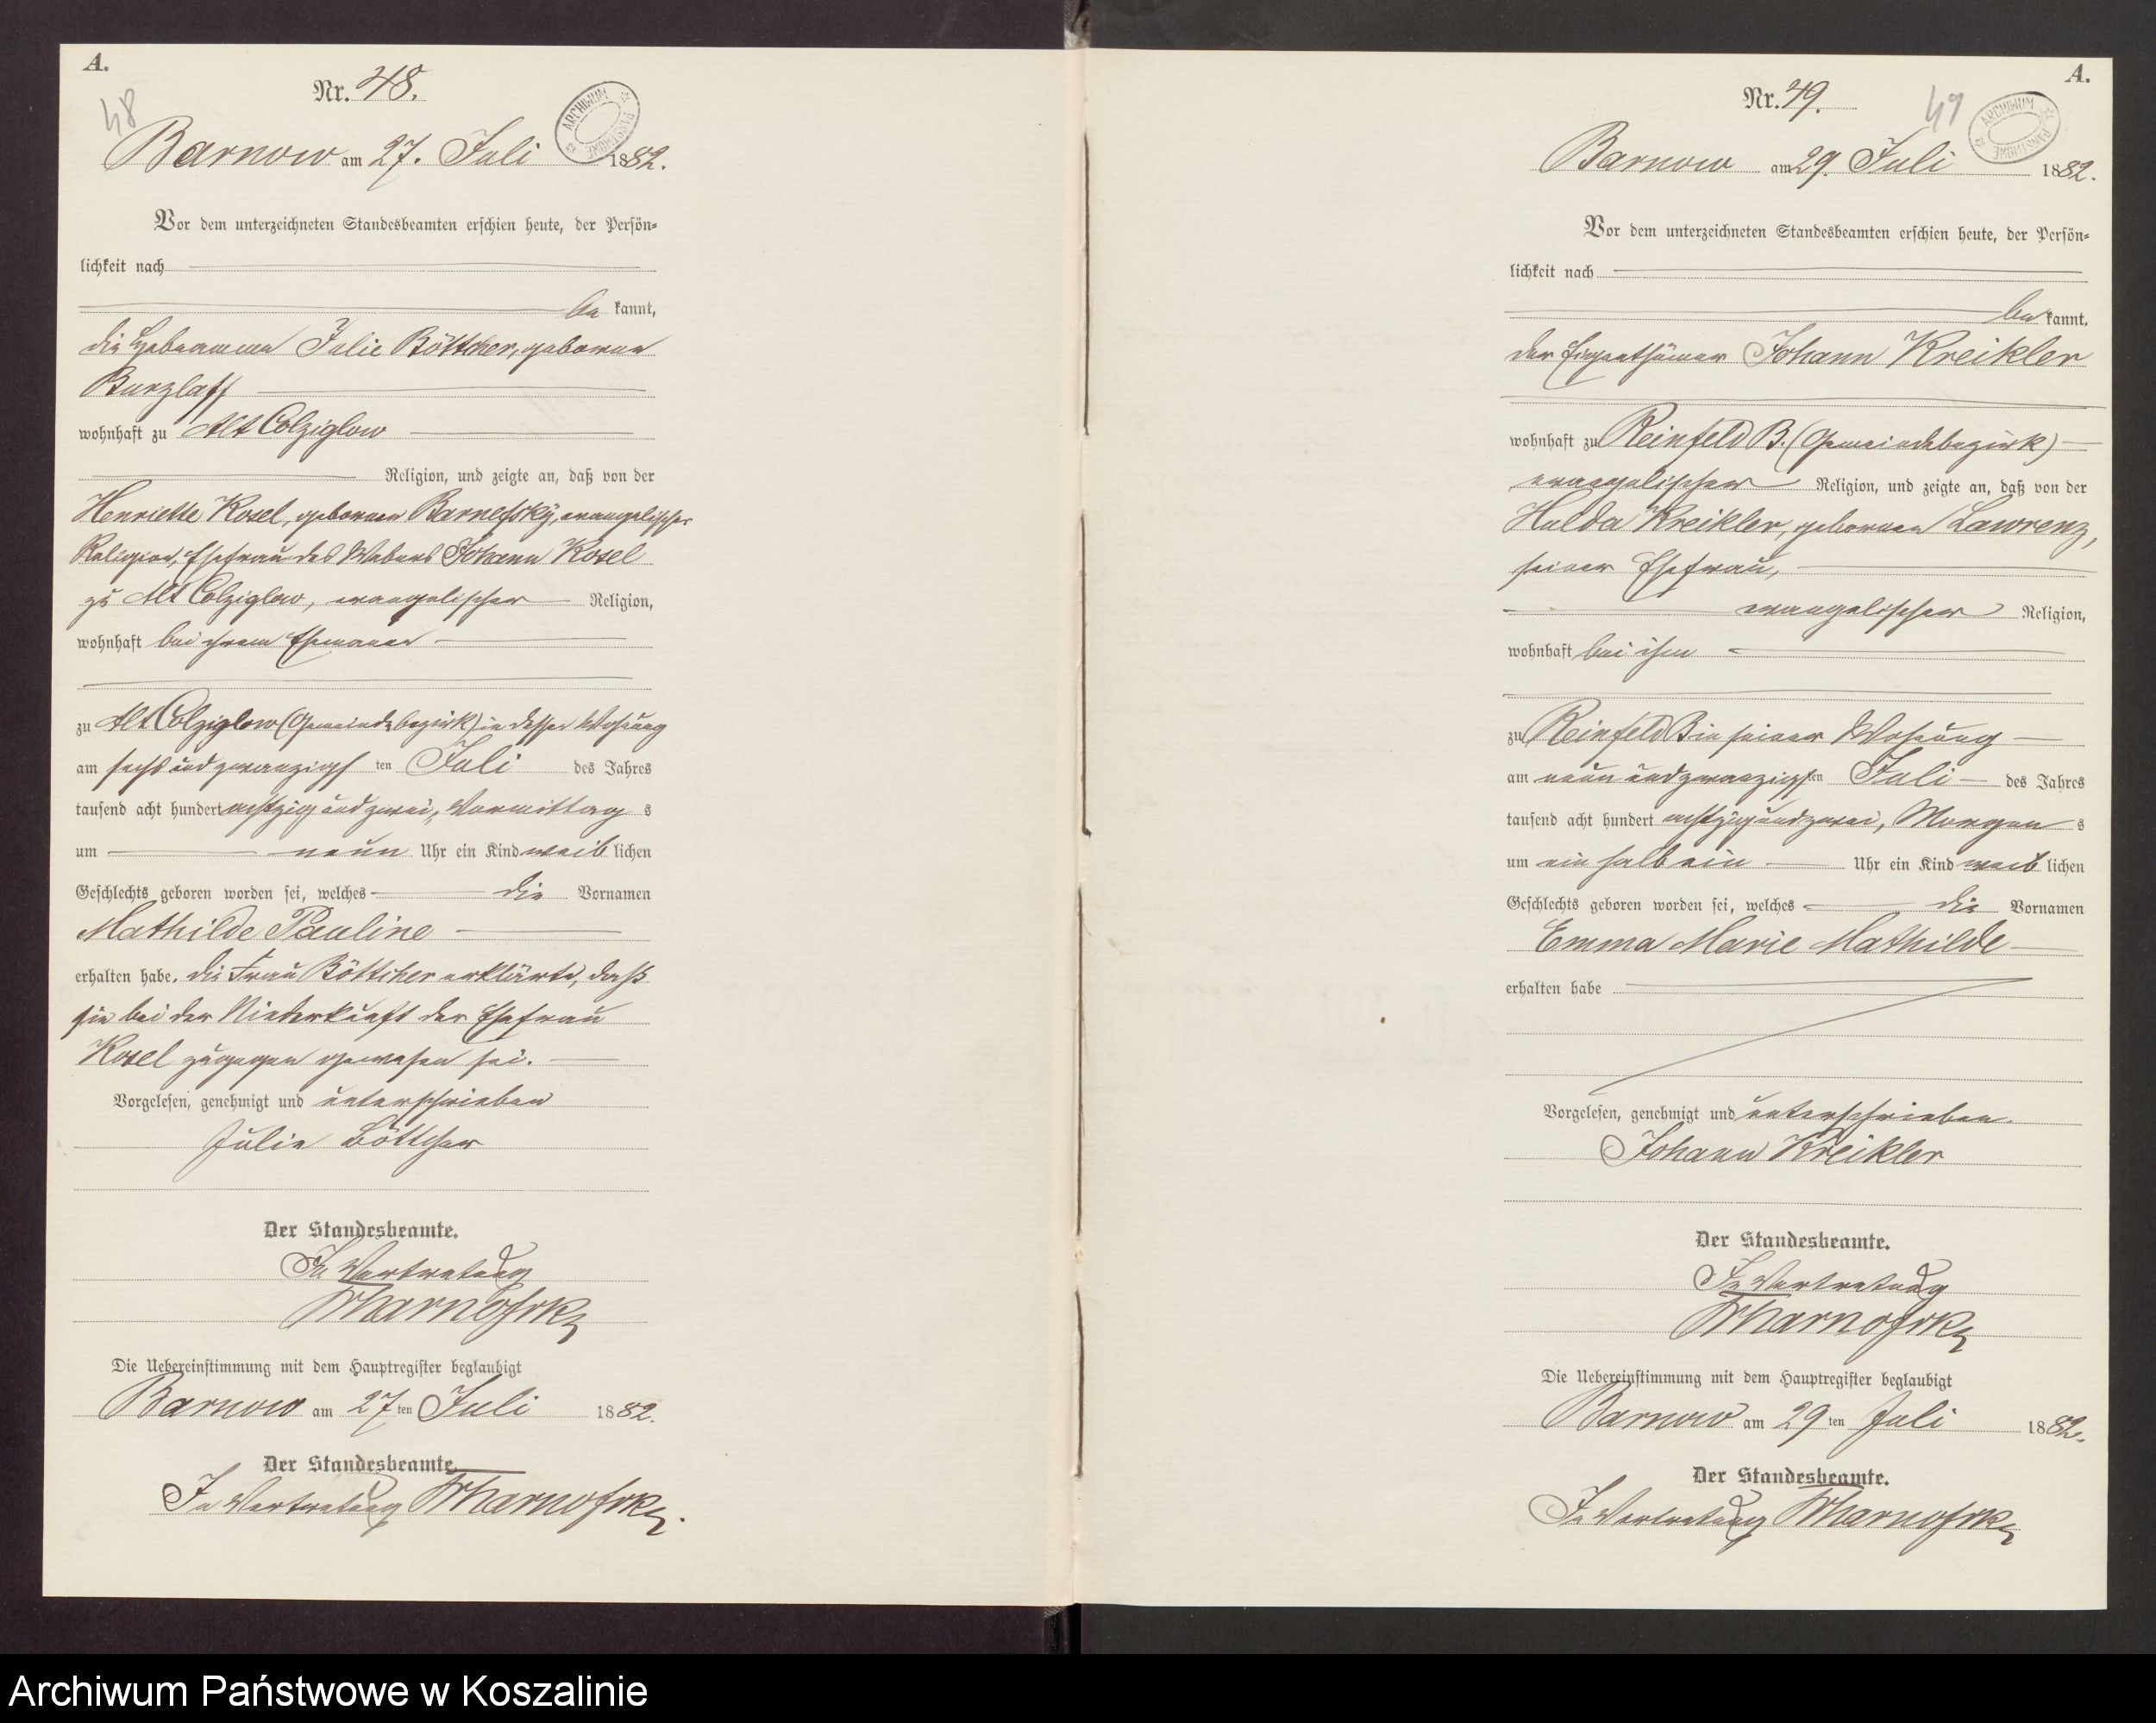 A.
Nr. 48.
48
ARCHIWUM PAŃSTWOWE
Barnow am 27. Juli 1882.
Vor dem unterzeichneten Standesbeamten erschien heute, der Persön-
lichkeit nach
be kannt,
die Hebeamme Julie Böttcher, geborne
Burzlaff
wohnhaft zu Alt Colziglow
Religion, und zeigte an, daß von der
Henriette Kosel, gebornen Barnefsky, evangelischer
Religion, Ehefrau des Webers Johann Kosel
zu Alt Colziglow, evangelischer Religion,
wohnhaft bei ihrem Ehemann
zu Alt Colziglow (Gemeindebezirk) in dessen Wohnung
am sechs und zwanzigsten Juli des Jahres
tausend acht hundert achtzig und zwei, Vormittag s
um neun Uhr ein Kind weib lichen
Geschlechts geboren worden sei, welches die Vornamen
Mathilde Pauline
erhalten habe. Die Frau Böttcher erklärte, daß
sie bei der Niederkunft der Ehefrau
Kosel zugegen gewesen sei.
Vorgelesen, genehmigt und unterschrieben
Julie Böttcher
Der Standesbeamte.
In Vertretung
Die Uebereinstimmung mit dem Hauptregister beglaubigt
Barnow am 27 ten Juli 1882.
Der Standesbeamte.
In Vertretung
A.
Nr. 49.
49
ARCHIWUM PAŃSTWOWE
Barnow am 29. Juli 1882.
Vor dem unterzeichneten Standesbeamten erschien heute, der Persön-
lichkeit nach
be kannt,
der Eigenthümer Johann Kreikler
wohnhaft zu Reinfeld B. (Gemeindebezirk)
evangelischer Religion, und zeigte an, daß von der
Hulda Kreikler, gebornen Lawrenz,
seiner Ehefrau,
evangelischer Religion,
wohnhaft bei ihm
zu Reinfeld B in seiner Wohnung
am neun und zwanzigsten Juli des Jahres
tausend acht hundert achtzig und zwei, Morgen s
um ein halb ein Uhr ein Kind weib lichen
Geschlechts geboren worden sei, welches die Vornamen
Emma Marie Mathilde
erhalten habe
Vorgelesen, genehmigt und unterschrieben.
Johann Kreikler
Der Standesbeamte.
In Vertretung
Die Uebereinstimmung mit dem Hauptregister beglaubigt
Barnow am 29 ten Juli 1882.
Der Standesbeamte.
In Vertretung
Archiwum Państwowe w Koszalinie